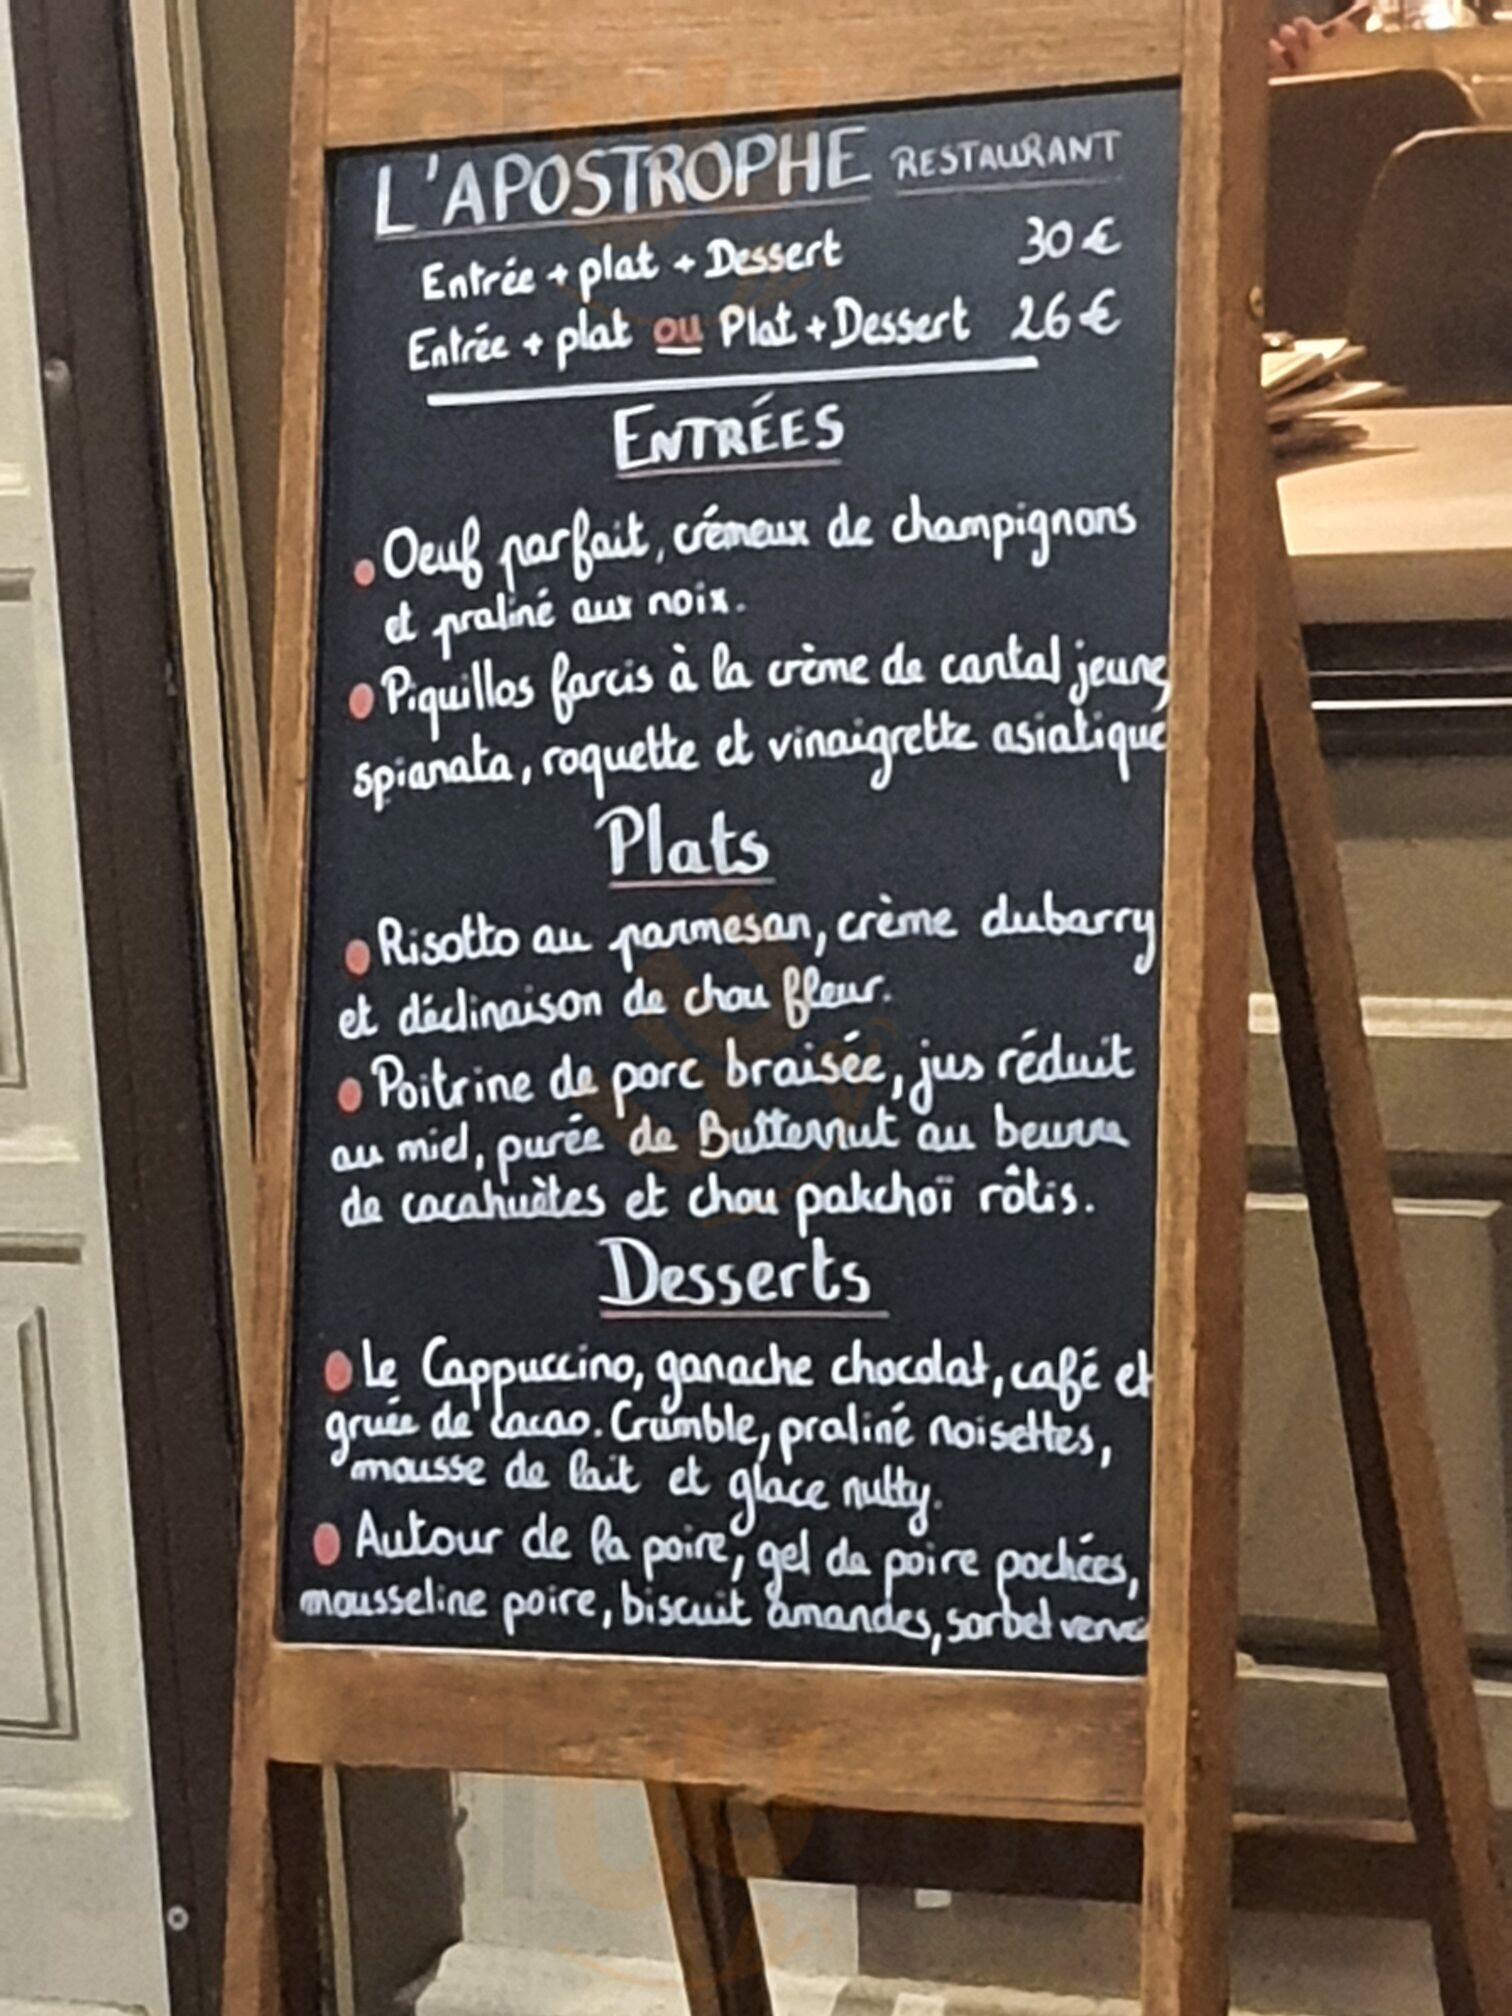 L'APOSTROPHE RESTAURANT
Entrée + plat + Dessert 30 €
Entrée + plat ou Plat + Dessert 26 €
ENTRÉES
Oeuf parfait, crémeux de champignons
et praliné aux noix.
Piquillos farcis à la crème de cantal jeune,
spianata, roquette et vinaigrette asiatique
Plats
Risotto au parmesan, crème dubarry
et déclinaison de chou fleur.
Poitrine de porc braisée, jus réduit
au miel, purée de Butternut au beurre
de cacahuètes et chou pakchoï rôtis.
Desserts
Le Cappuccino, ganache chocolat, café et
gruée de cacao. Crumble, praliné noisettes,
mousse de lait et glace nutty.
Autour de la poire, gel de poire pochées,
mousseline poire, biscuit amandes, sorbet